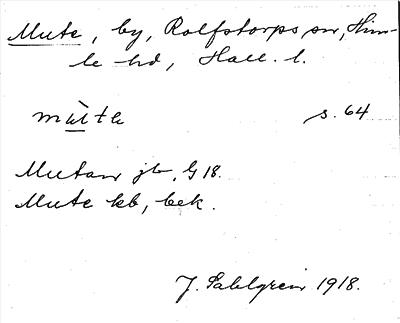 Mute, by, Rolfstorps sn, Him-
le hd, Hall. l.
mù̱te s. 64
Mutam jb, G 18.
Mute kb, bek.
J. Sahlgren 1918.